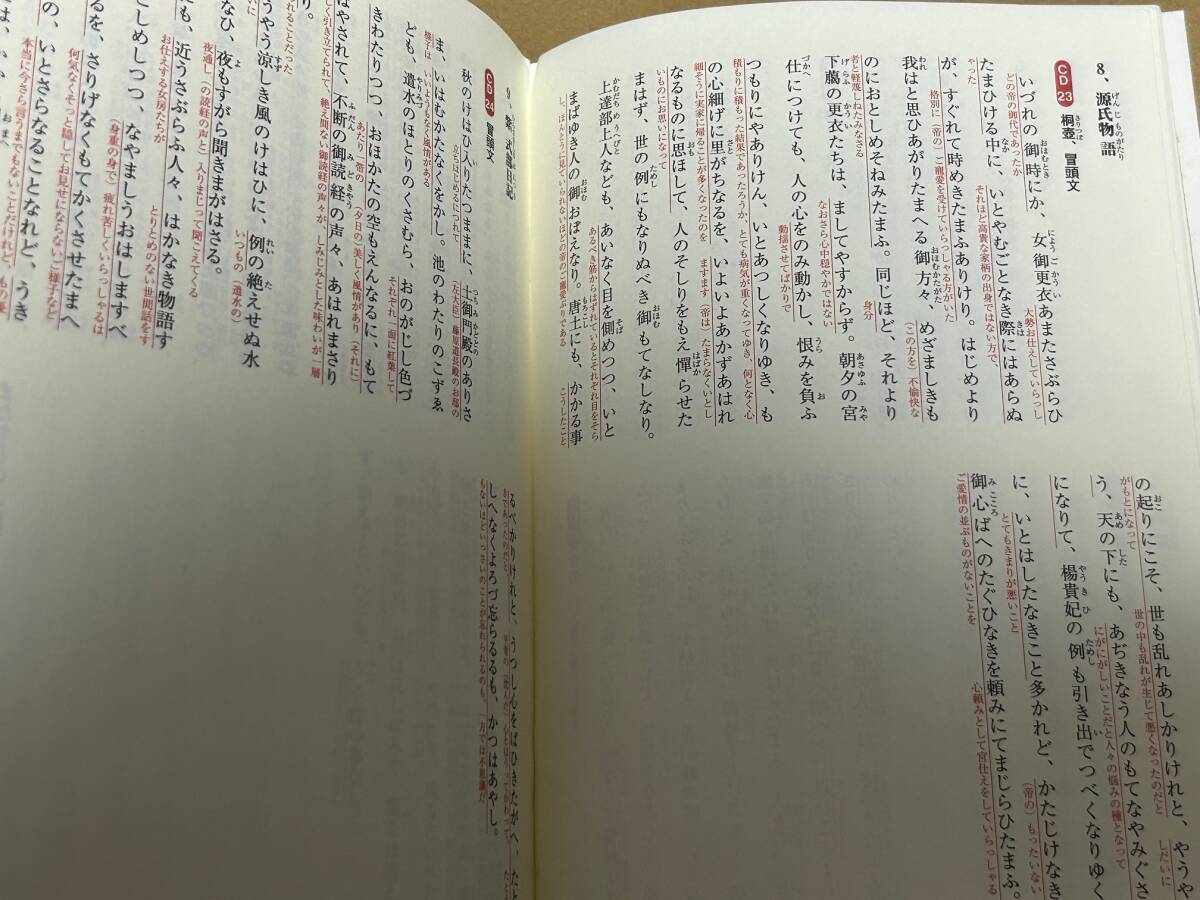 8、源氏物語
げんじものがたり
CD 23 桐壺、冒頭文
きりつぼ
いづれの御時にか、女御更衣あまたさぶらひ
おほむとき にようごかうい
どの帝の御代であったか 大勢お仕えしていらっしゃった
たまひける中に、いとやむごとなき際にはあらぬ
なか きは
それほど高貴な家柄の出身ではない方で、
が、すぐれて時めきたまふありけり。はじめより
格別に(帝の)ご寵愛を受けていらっしゃる方がいた
我はと思ひあがりたまへる御方々、めざましきも
われ おほむかたがた
(この方を)不愉快な
のにおとしめそねみたまふ。同じほど、それより
者と軽蔑しねたみなさる 身分
下﨟の更衣たちは、ましてやすからず。朝夕の宮
げらふ かうい あさゆふ みや
なおさら心中穏やかではない
仕につけても、人の心をのみ動かし、恨みを負ふ
づかへ うら お
動揺させてばかりで
つもりにやありけん、いとあつしくなりゆき、も
積もりに積もった結果であったろうか、とても病気が重くなってゆき、何となく心
の心細げに里がちなるを、いよいよあかずあはれ
さと
細そうに実家に帰ることが多くなったのを ますます(帝は)たまらなくいとし
なるものに思ほして、人のそしりをもえ憚らせた
おも はばか
いものにお思いになって
まはず、世の例にもなりぬべき御もてなしなり。
ためし おほむ
上達部上人なども、あいなく目を側めつつ、いと
かむだちめうへびと そば
あるべき筋からはずれているとそれぞれ目をそら
まばゆき人の御おぼえなり。唐土にも、かかる事
おほむ もろこし
し、ほんとうに見ていられないほどの帝のご寵愛ぶりである こうしたこと
の起りにこそ、世も乱れあしかりけれと、やうや
おこ
がもとになって 世の中も乱れが生じて悪くなったのだと しだいに
う、天の下にも、あぢきなう人のもてなやみぐさ
あめ した
にがにがしいことだと人々の悩みの種となって
になりて、楊貴妃の例も引き出でつべくなりゆく
やうきひ ためし い
に、いとはしたなきこと多かれど、かたじけなき
とてもきまりが悪いこと (帝の)もったいない
御心ばへのたぐひなきを頼みにてまじらひたまふ。
みこころ
ご愛情の並ぶものがないことを 心頼みとして宮仕えをしていらっしゃる
9、紫式部日記
CD 24 冒頭文
秋のけはひ入りたつままに、土御門殿のありさ
つちみかどどの
立ちはじめるにつれて (左大臣)藤原道長殿のお邸の
ま、いはむかたなくをかし。池のわたりのこずゑ
様子は いいようもなく風情がある
ども、遣水のほとりのくさむら、おのがじし色づ
やりみづ
それぞれ一面に紅葉して
きわたりつつ、おほかたの空もえんなるに、もて
あたり一帯の (夕日の)美しく風情があり(それに)
はやされて、不断の御読経の声々、あはれまさり
ふだん みどきやう
しく引き立てられて、絶え間ない御読経の声々が、しみじみとした味わいが一層
けり。
れることだった
うやう涼しき風のけはひに、例の絶えせぬ水
すず れい た
いつもの(遣水の)
なひ、夜もすがら聞きまがはさる。
よ
夜通し(の読経の声と)入りまじって聞こえてくる
にも、近うさぶらふ人々、はかなき物語す
お仕えする女房たちが とりとめのない世間話をす
こしめしつつ、なやましうおはしますべ
(身重の身で)疲れ苦しくいらっしゃるは
るを、さりげなくもてかくさせたまへ
何気なくそっと隠してお見せにならないご様子など
、いとさらなることなれど、うき
本当に今さら言うまでもないことだけれど、もの憂
るべかりけれと、うつし心をばひきたがへ、たと
しへなくよろづ忘らるるも、かつはあやし。
もないほどいっさいのことが忘れられるのも、一方では不思議だ